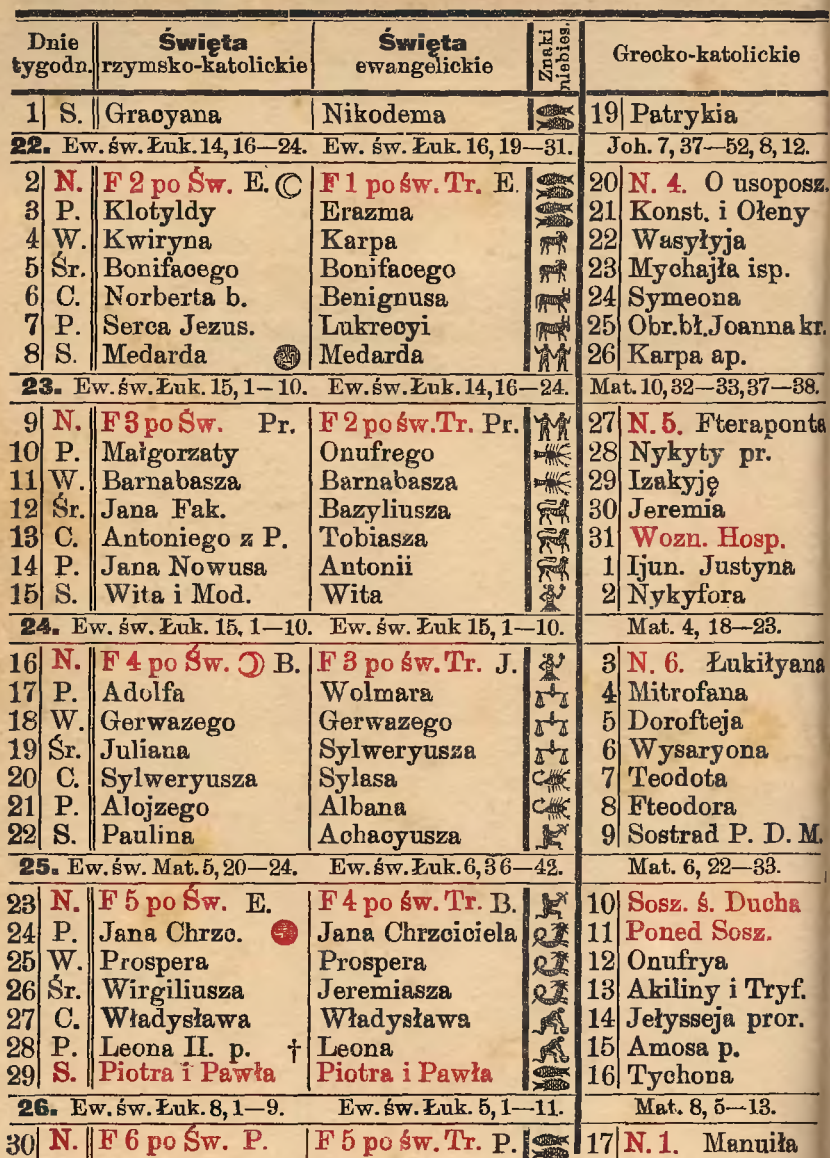 Dnie tygodn. Święta rzymsko-katolickie Święta ewangelickie Znaki niebies. Grecko-katolickie
1 S. Gracyana Nikodema 19 Patrykia
22. Ew. św. Łuk. 14, 16—24. Ew. św. Łuk. 16, 19—31. Joh. 7, 37—52, 8, 12.
2 N. F 2 po Św. E. F 1 po św. Tr. E. 20 N. 4. O usoposz.
3 P. Klotyldy Erazma 21 Konst. i Ołeny
4 W. Kwiryna Karpa 22 Wasyłyja
5 Śr. Bonifacego Bonifacego 23 Mychajła isp.
6 C. Norberta b. Benignusa 24 Symeona
7 P. Serca Jezus. Lukrecyi 25 Obr. bł. Joanna kr.
8 S. Medarda Medarda 26 Karpa ap.
23. Ew. św. Łuk. 15, 1—10. Ew. św. Łuk. 14, 16—24. Mat. 10, 32—33, 37—38.
9 N. F 3 po Św. Pr. F 2 po św. Tr. Pr. 27 N. 5. Fteraponta
10 P. Małgorzaty Onufrego 28 Nykyty pr.
11 W. Barnabasza Barnabasza 29 Izakyję
12 Śr. Jana Fak. Bazyliusza 30 Jeremia
13 C. Antoniego z P. Tobiasza 31 Wozn. Hosp.
14 P. Jana Nowusa Antonii 1 Ijun. Justyna
15 S. Wita i Mod. Wita 2 Nykyfora
24. Ew. św. Łuk. 15, 1—10. Ew. św. Łuk 15, 1—10. Mat. 4, 18—23.
16 N. F 4 po Św. B. F 3 po św. Tr. J. 3 N. 6. Łukiłyana
17 P. Adolfa Wolmara 4 Mitrofana
18 W. Gerwazego Gerwazego 5 Dorofteja
19 Śr. Juliana Sylweryusza 6 Wysaryona
20 C. Sylweryusza Sylasa 7 Teodota
21 P. Alojzego Albana 8 Fteodora
22 S. Paulina Achacyusza 9 Sostrad P. D. M.
25. Ew. św. Mat. 5, 20—24. Ew. św. Łuk. 6, 36—42. Mat. 6, 22—33.
23 N. F 5 po Św. E. F 4 po św. Tr. B. 10 Sosz. ś. Ducha
24 P. Jana Chrzc. Jana Chrzciciela 11 Poned Sosz.
25 W. Prospera Prospera 12 Onufrya
26 Śr. Wirgiliusza Jeremiasza 13 Akiliny i Tryf.
27 C. Władysława Władysława 14 Jełysseja pror.
28 P. Leona II. p. † Leona 15 Amosa p.
29 S. Piotra i Pawła Piotra i Pawła 16 Tychona
26. Ew. św. Łuk. 8, 1—9. Ew. św. Łuk. 5, 1—11. Mat. 8, 5—13.
30 N. F 6 po Św. P. F 5 po św. Tr. P. 17 N. 1. Manuiła